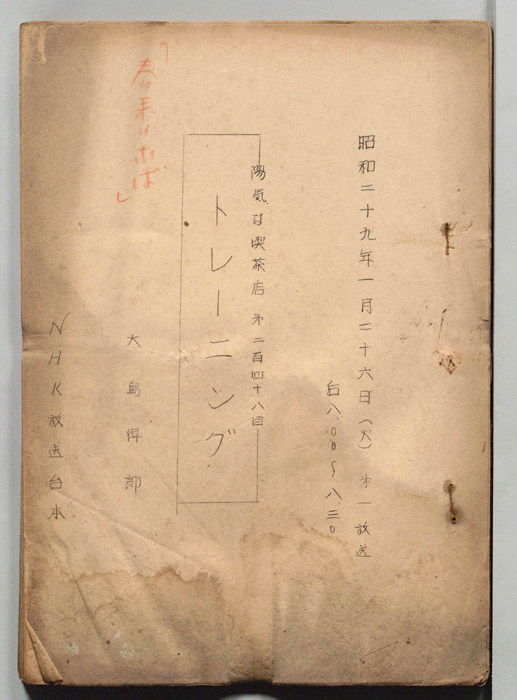 昭和二十九年一月二十六日(火)第一放送
后八.〇〇〜八.三〇
陽気な喫茶店 第二百四十八回
トレーニング
大島得郎
NHK放送台本